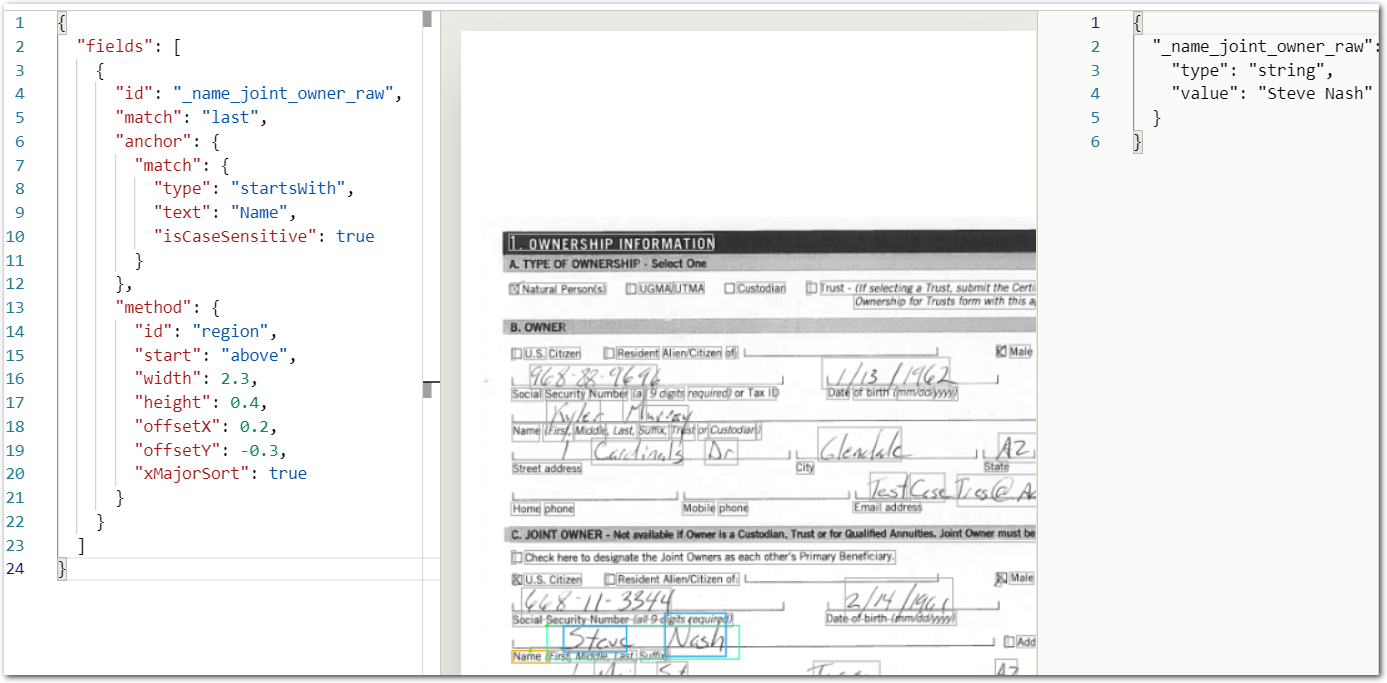 1 {
2 "fields": [
3 {
4 "id": "_name_joint_owner_raw",
5 "match": "last",
6 "anchor": {
7 "match": {
8 "type": "startsWith",
9 "text": "Name",
10 "isCaseSensitive": true
11 }
12 },
13 "method": {
14 "id": "region",
15 "start": "above",
16 "width": 2.3,
17 "height": 0.4,
18 "offsetX": 0.2,
19 "offsetY": -0.3,
20 "xMajorSort": true
21 }
22 }
23 ]
24 }
1. OWNERSHIP INFORMATION
A. TYPE OF OWNERSHIP - Select One
Natural Person(s) UGMA/UTMA Custodian Trust - (If selecting a Trust, submit the Certi
Ownership for Trusts form with this a
B. OWNER
U.S. Citizen Resident Alien/Citizen of: Male
968-88-9696 1/13/1962
Social Security Number (all 9 digits required) or Tax ID Date of birth (mm/dd/yyyy)
Kyler Murray
Name (First, Middle, Last, Suffix, Trust or Custodian)
1 Cardinals Dr Glendale AZ
Street address City State
TestCaseTies@
Home phone Mobile phone Email address
C. JOINT OWNER - Not available if Owner is a Custodian, Trust or for Qualified Annuities. Joint Owner must be
Check here to designate the Joint Owners as each other's Primary Beneficiary.
U.S. Citizen Resident Alien/Citizen of: Male
668-11-3344 2/14/1961
Social Security Number (all 9 digits required) Date of birth (mm/dd/yyyy)
Steve Nash Add
Name (First, Middle, Last, Suffix)
AZ
1 {
2 "_name_joint_owner_raw":
3 "type": "string",
4 "value": "Steve Nash"
5 }
6 }